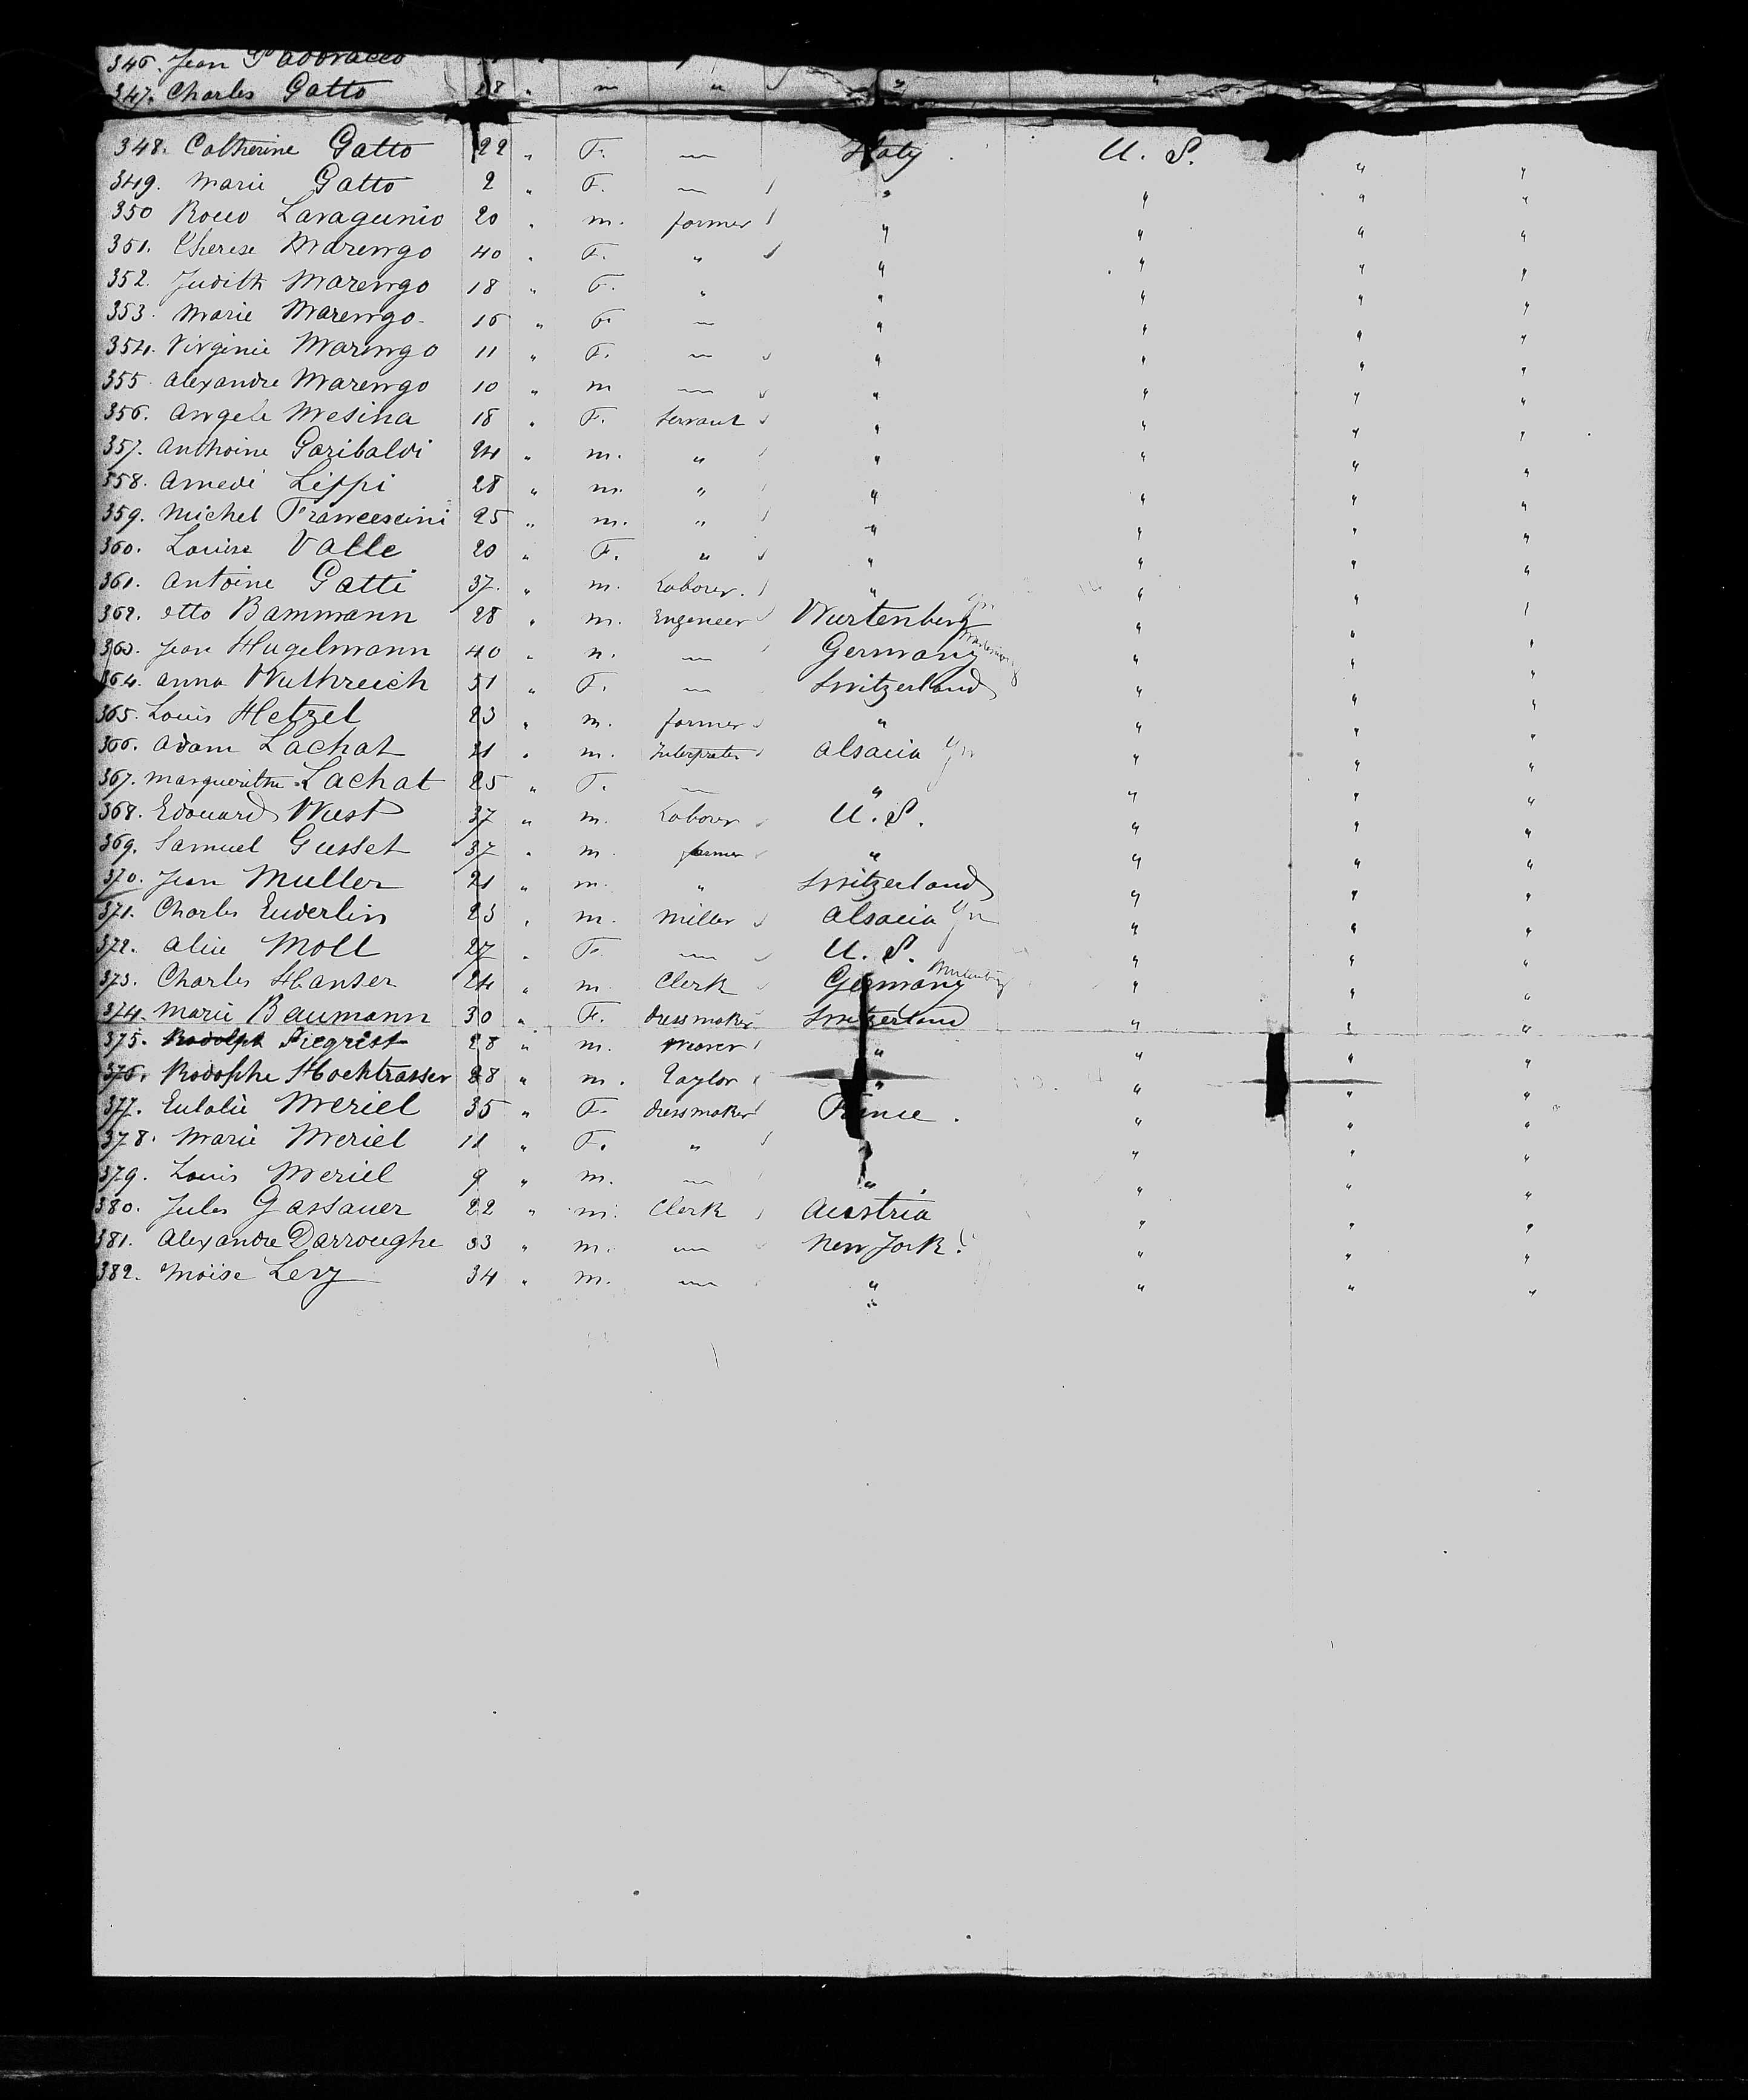 346. Jean Padovacco
347. Charles Gatto 28 " m " " "
348. Catherine Gatto 22 " F. — Italy U. S. " "
349. Marie Gatto 2 " F. — " " " "
350 Rocco Lavagunio 20 " m. farmer " " " "
351. Therese Marengo 40 " F. " " " " "
352. Judith Marengo 18 " F. " " " " "
353. Marie Marengo 16 " F. — " " " "
354. Virginie Marengo 11 " F. — " " " "
355. Alexandre Marengo 10 " m — " " " "
356. Angele Mesina 18 " F. Servant " " " "
357. Anthoine Garibaldi 24 " m. " " " " "
358. Amedé Lippi 28 " m. " " " " "
359. Michel Francescini 25 " m. " " " " "
360. Louise Valle 20 " F. " " " " "
361. Antoine Gatti 37. " m. Laborer. " " " "
362. Otto Bammann 28 " m. Engeneer Wurtenberg " " "
363. Jean Hugelmann 40 " m. — Germany " " "
364. Anna Wuthreich 51 " F. — Switzerland " " "
365. Louis Hetzel 23 " m. farmer " " " "
366. Adam Lachat 31 " m. Interpreter Alsacia " " "
367. Marguerithe Lachat 25 " F. — " " " "
368. Edouard Wust 37 " m. Laborer U. S. " " "
369. Samuel Gusset 37 " m. farmer " " " "
370. Jean Muller 21 " m. " Switzerland " " "
371. Charles Enderlin 23 " m. Miller Alsacia " " "
372. Alice Moll 27 " F. — U. S. " " "
373. Charles Hanser 24 " m. Clerk Germany Wurtenberg " " "
374. Marie Baumann 30 " F. dressmaker Switzerland " " "
375. Rodolph Siegrist 28 " m. Weaver " " " "
376. Rodophe Hochtrasser 28 " m. Taylor " " " "
377. Eulalie Meriel 35 " F. dressmaker France. " " "
378. Marie Meriel 11 " F. " " " " "
379. Louis Meriel 9 " m. — " " " "
380. Jules Gassauer 22 " m. Clerk Austria " " "
381. Alexandre Darroughe 33 " m. — New York " " "
382. Moïse Levy 34 " m. — " " " "
"